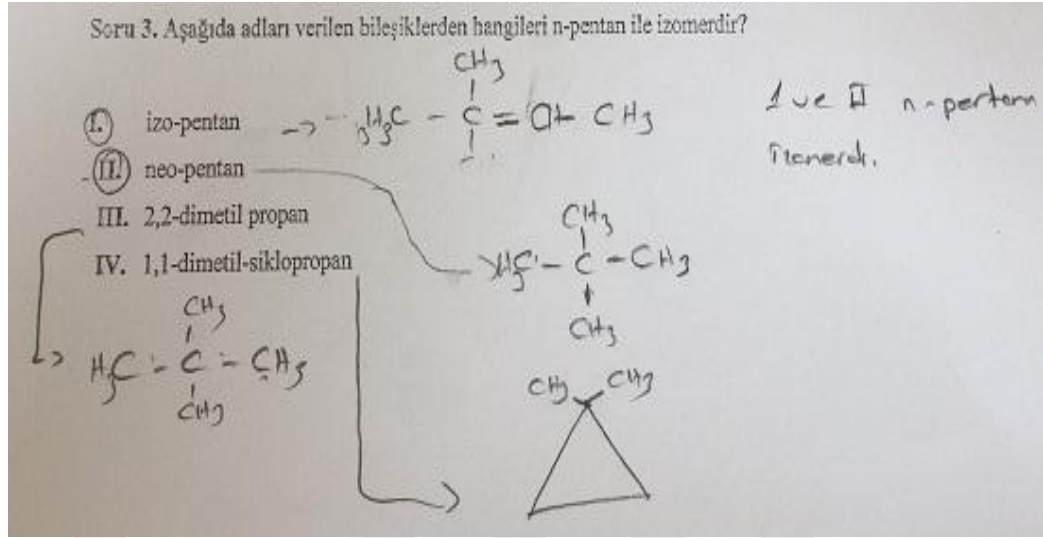 Soru 3. Aşağıda adları verilen bileşiklerden hangileri n-pentan ile izomerdir?
I. izo-pentan
II. neo-pentan
III. 2,2-dimetil propan
IV. 1,1-dimetil-siklopropan
CH3
H3C - C = CH - CH3
1 ve II n-pentanın
İzomerdi.
CH3
H3C - C - CH3
CH3
CH3
H3C - C - CH3
CH3
CH3 CH3